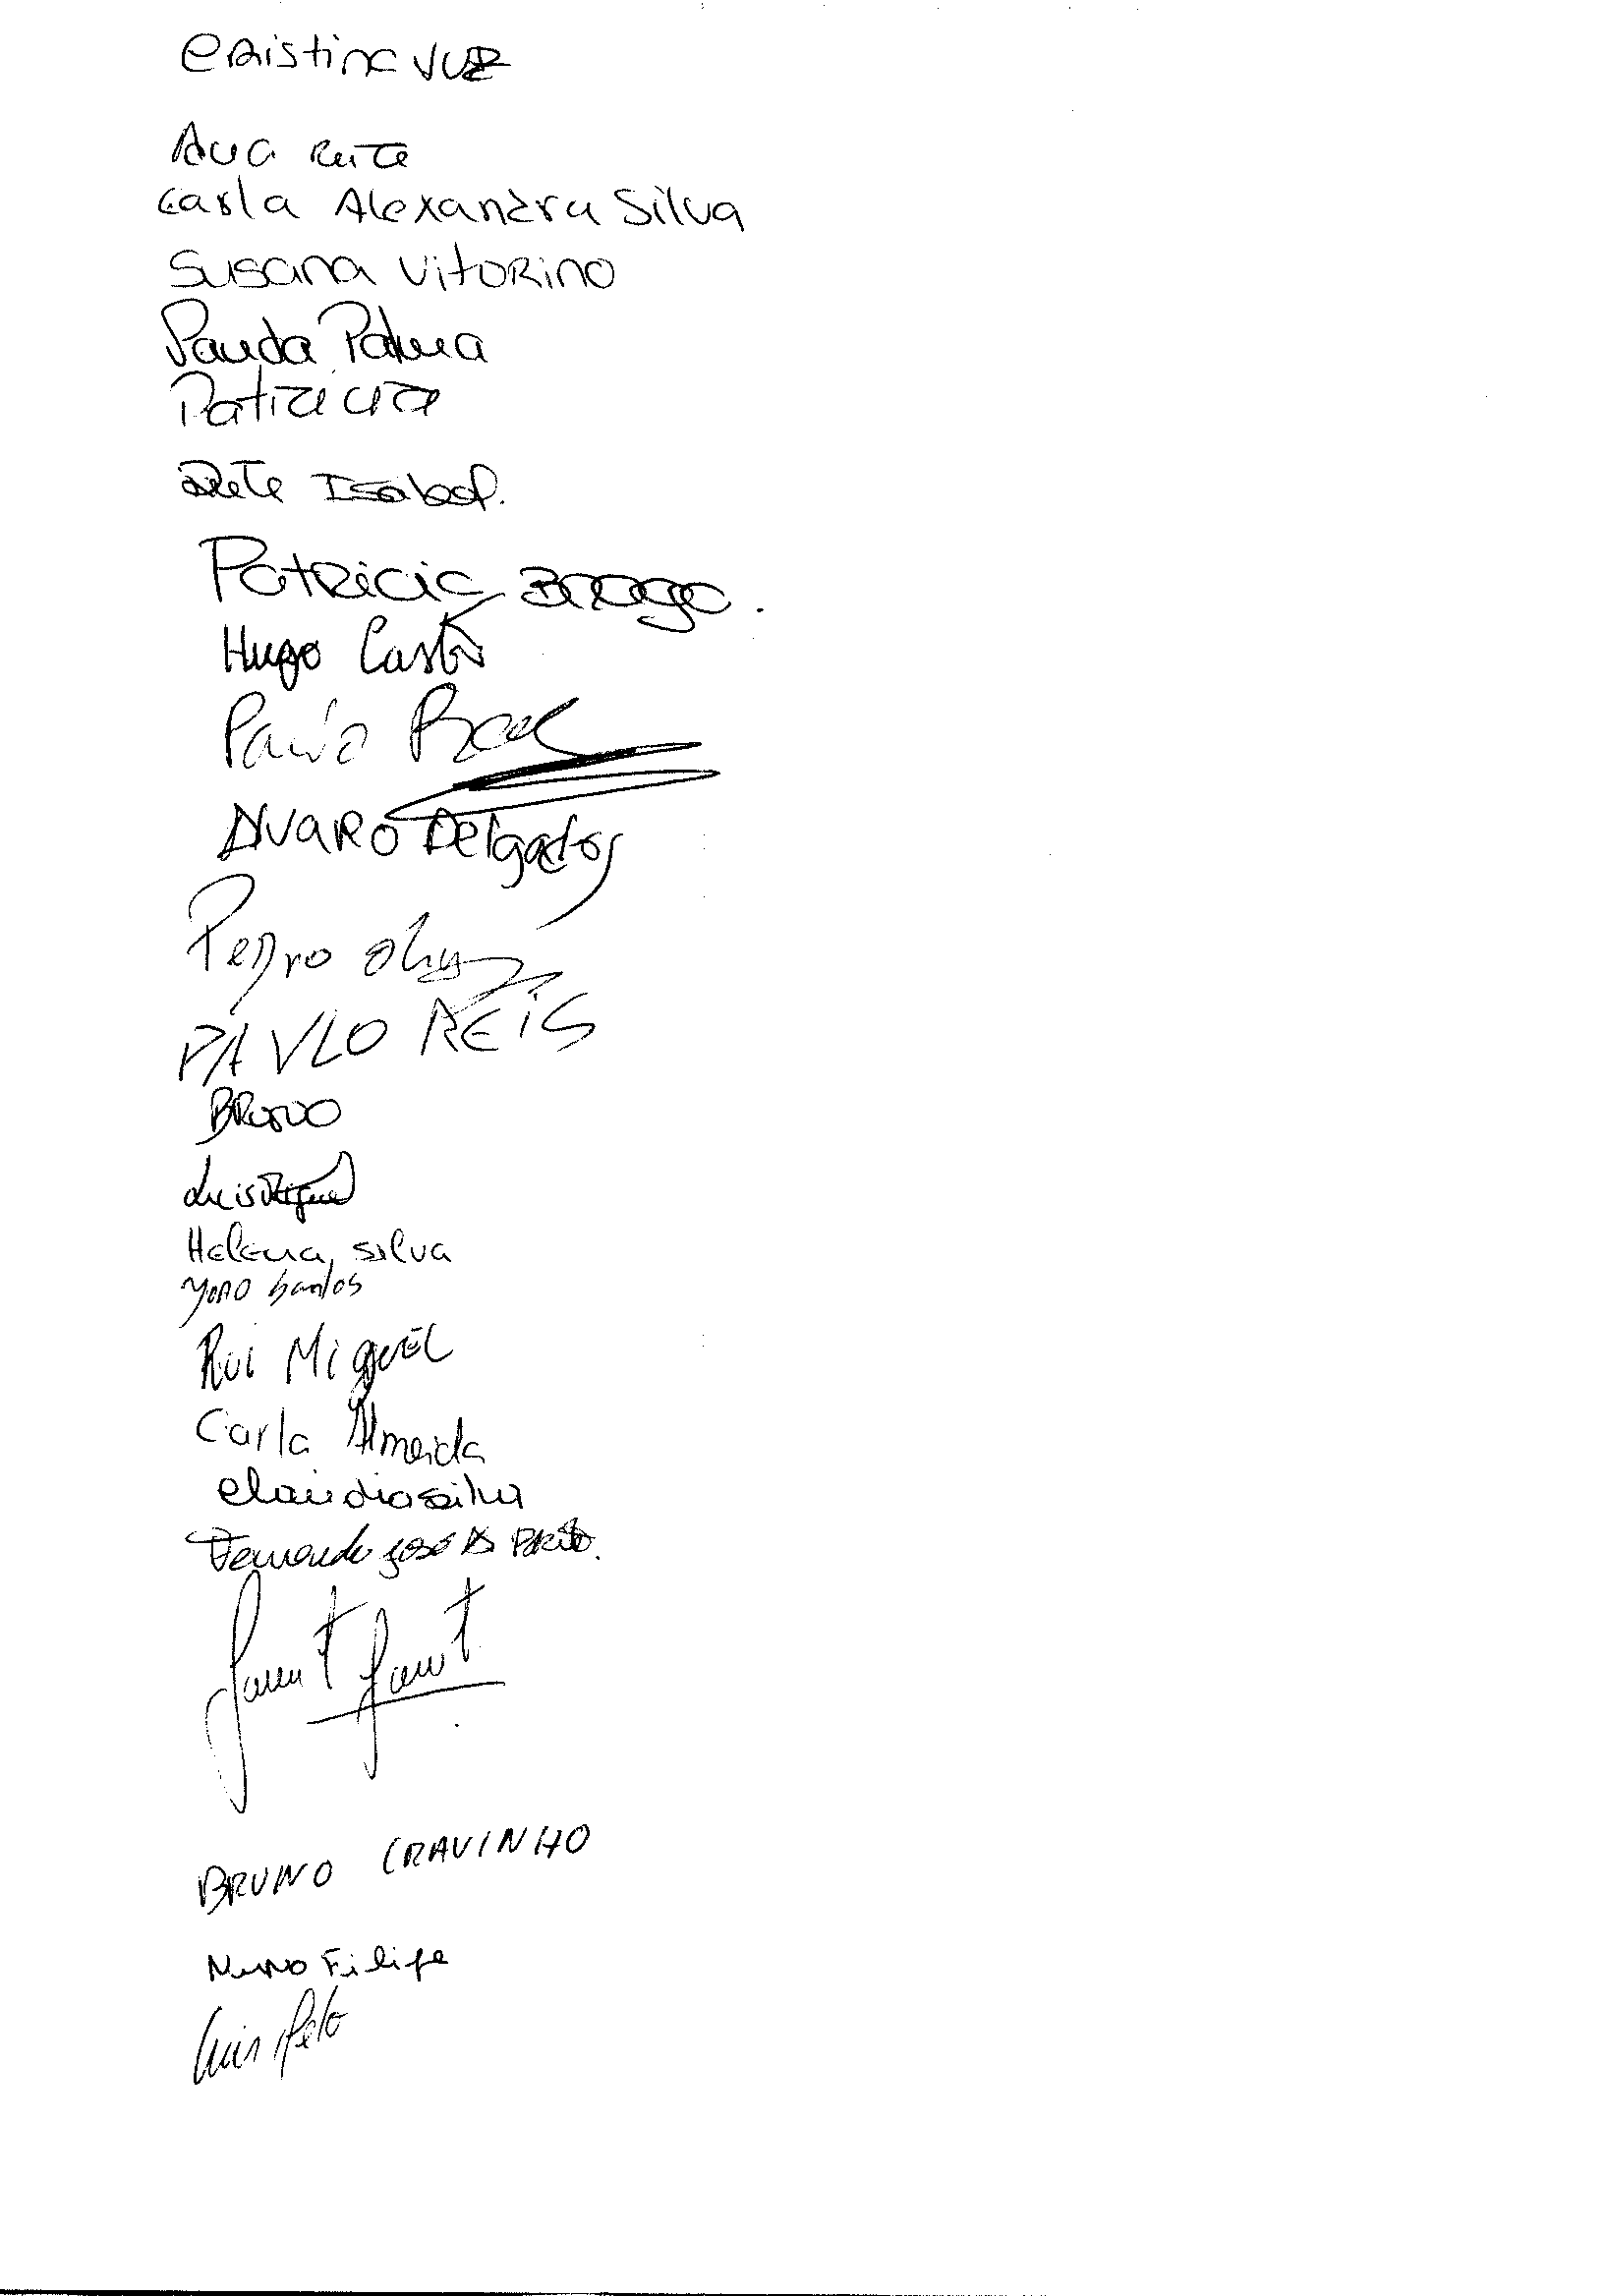 Cristina Vuz
Ana Rute
Carla Alexandra Silva
Susana Vitorino
Palma
Patricia
Rute Isabel.
Patricia Braga.
Hugo Castro
Paulo
Alvaro Delgado
Pedro
PAULO REIS
BRUNO
Luis Miguel
Helena Silva
João Santos
Rui Miguel
Carla Almeida
Claudia Silva
Fernando José
BRUNO CRAVINHO
Nuno Filipe
Luis Melo